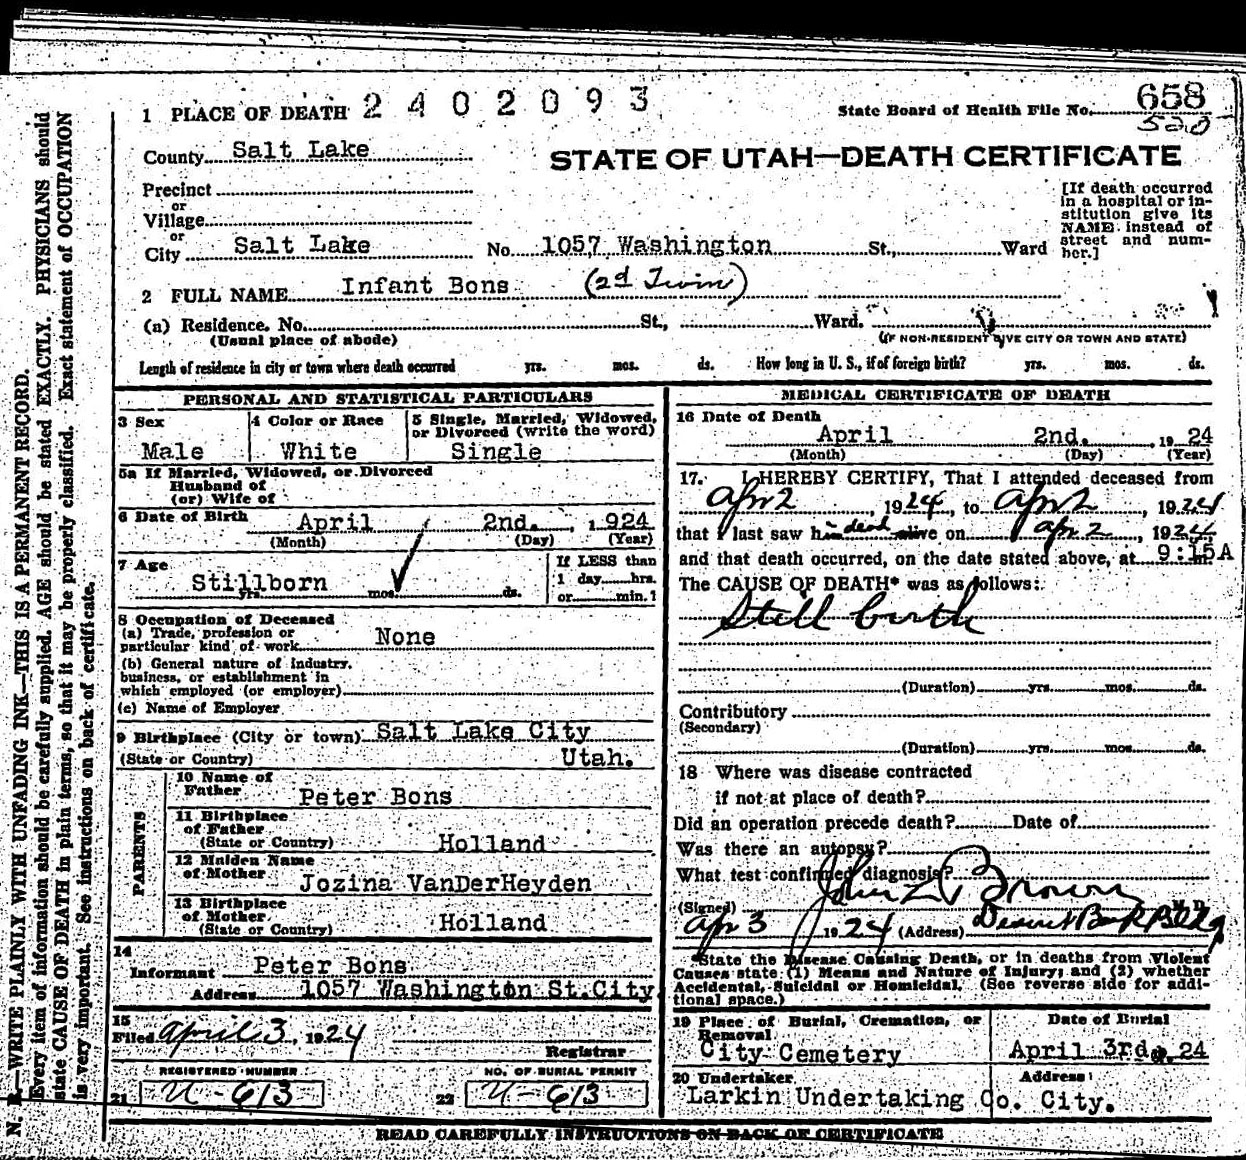 1 PLACE OF DEATH 2 4 0 2 0 9 3
State Board of Health File No. 658
520
County Salt Lake
STATE OF UTAH—DEATH CERTIFICATE
Precinct
or
Village
or
City Salt Lake No. 1057 Washington St., Ward
[If death occurred
in a hospital or in-
stitution give its
NAME instead of
street and num-
ber.]
2 FULL NAME Infant Bons (2d Twin)
(a) Residence. No. St., Ward.
(Usual place of abode) (IF NON-RESIDENT GIVE CITY OR TOWN AND STATE)
Length of residence in city or town where death occurred yrs. mos. ds. How long in U. S., if of foreign birth? yrs. mos. ds.
PERSONAL AND STATISTICAL PARTICULARS
3 Sex
Male
4 Color or Race
White
5 Single, Married, Widowed,
or Divorced (write the word)
Single
5a If Married, Widowed, or Divorced
Husband of
(or) Wife of
6 Date of Birth April 2nd. , 1 924
(Month) (Day) (Year)
7 Age
Stillborn
yrs. mos. ds.
If LESS than
1 day hrs.
or min.?
8 Occupation of Deceased
(a) Trade, profession or
particular kind of work None
(b) General nature of industry,
business, or establishment in
which employed (or employer)
(c) Name of Employer
9 Birthplace (City or town) Salt Lake City
(State or Country) Utah.
PARENTS
10 Name of
Father Peter Bons
11 Birthplace
of Father
(State or Country) Holland
12 Maiden Name
of Mother Jozina VanDerHeyden
13 Birthplace
of Mother
(State or Country) Holland
14
Informant Peter Bons
Address 1057 Washington St.City
15
Filed April 3, 1924
Registrar
REGISTERED NUMBER
21 U-613
NO. OF BURIAL PERMIT
22 U-613
MEDICAL CERTIFICATE OF DEATH
16 Date of Death
April 2nd. , 19 24
(Month) (Day) (Year)
17. I HEREBY CERTIFY, That I attended deceased from
Apr 2 , 1924, to Apr 2 , 1924
that I last saw him dead alive on apr 2 , 1924
and that death occurred, on the date stated above, at 9:15A m.
The CAUSE OF DEATH* was as follows:
Still birth
(Duration) yrs. mos. ds.
Contributory
(Secondary)
(Duration) yrs. mos. ds.
18 Where was disease contracted
if not at place of death?
Did an operation precede death? Date of
Was there an autopsy?
What test confirmed diagnosis?
(Signed) John Z Brown M. D.
Apr 3 1924 (Address) Deseret Bank Bldg
*State the Disease Causing Death, or in deaths from Violent
Causes state (1) Means and Nature of Injury; and (2) whether
Accidental, Suicidal or Homicidal. (See reverse side for addi-
tional space.)
19 Place of Burial, Cremation, or
Removal
City Cemetery
Date of Burial
April 3rd, 19 24
20 Undertaker Address
Larkin Undertaking Co. City.
READ CAREFULLY INSTRUCTIONS ON BACK OF CERTIFICATE
N. B.—WRITE PLAINLY WITH UNFADING INK—THIS IS A PERMANENT RECORD.
Every item of information should be carefully supplied. AGE should be stated EXACTLY. PHYSICIANS should
state CAUSE OF DEATH in plain terms, so that it may be properly classified. Exact statement of OCCUPATION
is very important. See instructions on back of certificate.